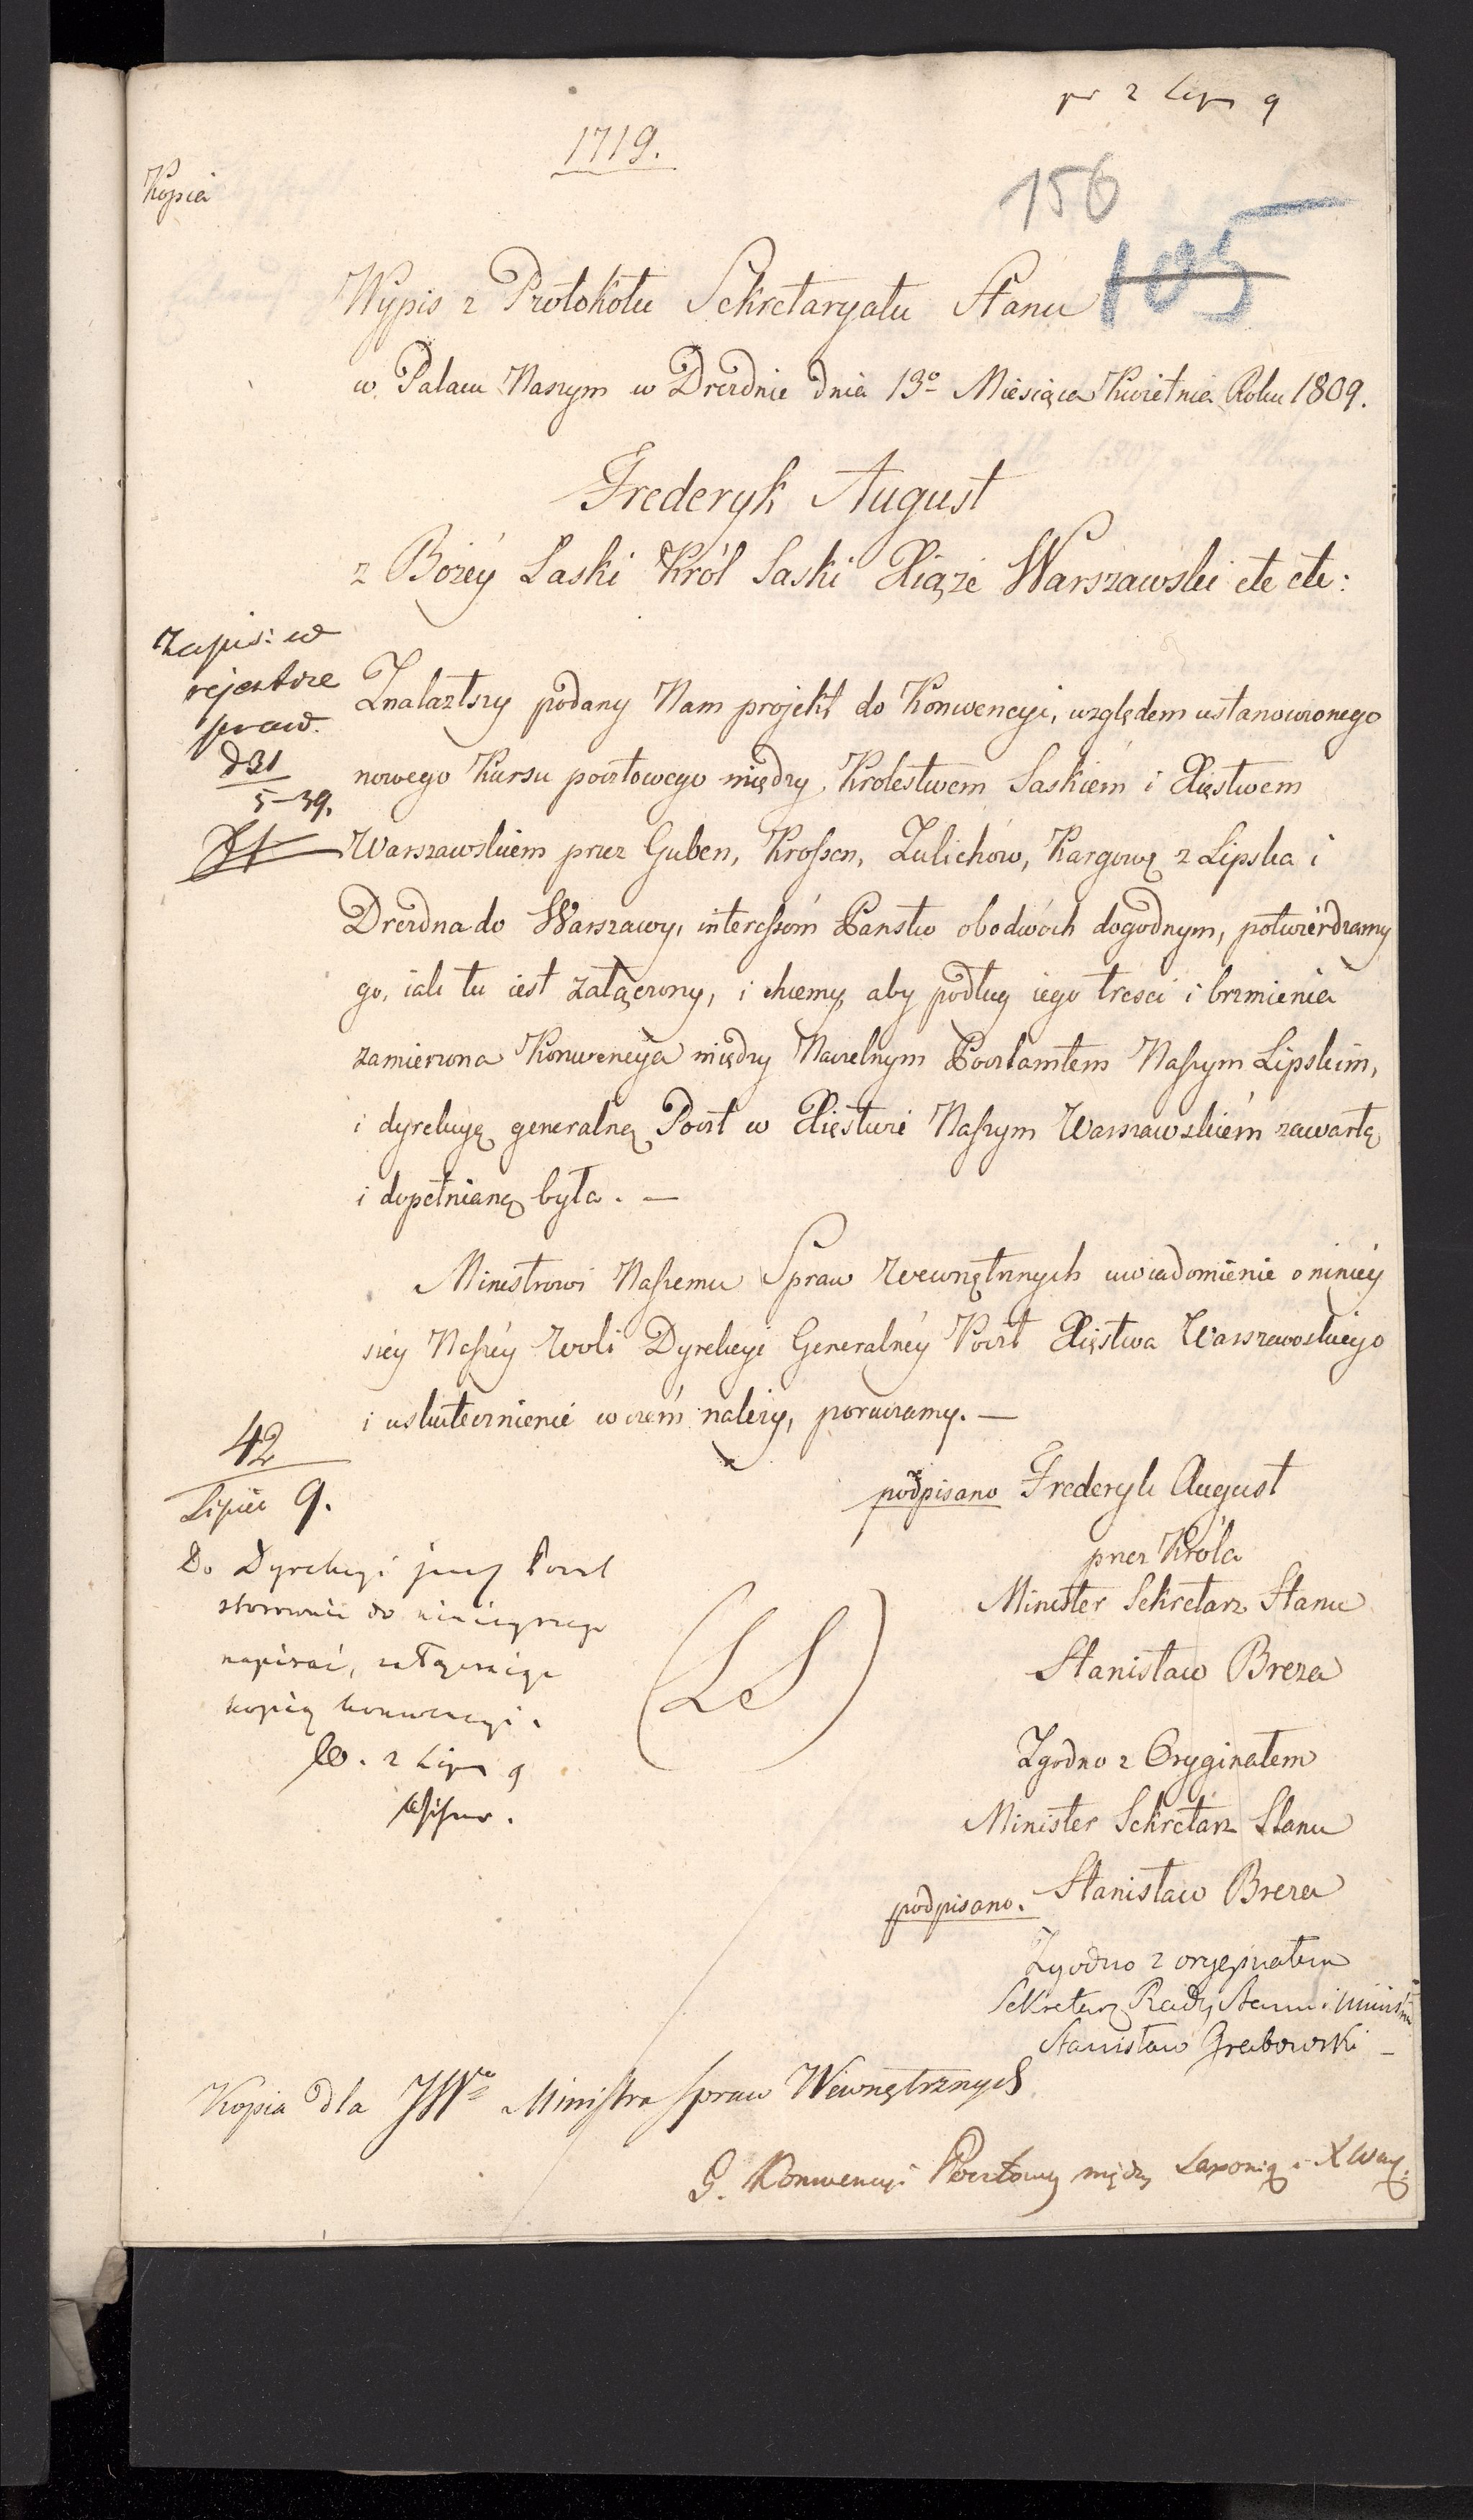 pr 2 Lip 9
1719.
Kopia
156
105
Wypis z Protokołu Sekretaryatu Stanu
w Pałacu Naszym w Dreźdnie dnia 13º Miesiąca Kwietnia Roku 1809.
Frederyk August
z Bożéy Łaski Król Saski Xiąże Warszawski etc etc:
Zapis: w
rejestrze
spraw.
d 31
5-39.
Znalazłszy podany Nam projekt do Konwencyi, względem ustanowionego
nowego Kursu pocztowego między Krolestwem Saskiém i Xięstwem
Warszawskiem przez Guben, Krossen, Zulichow, Kargowę z Lipska i
Drezdna do Warszawy, interessóm Państw obodwóch dogodnym, potwiérdzamy
go, iak tu iest załączony, i chcemy, aby podług iego tresci i brzmienia
zamierzona Konwencya między Naczelnym Pocztamtem Naszym Lipskim,
i dyrekcyą generalną Poczt w Xięstwie Naszym Warszawskiém zawartą
i dopełnianą była. —
Ministrowi Naszemu Spraw Wewnętrznych uwiadomienie o niniey
szey Naszéy Woli Dyrekcyi Generalnéy Poczt Xięstwa Warszawskiego
i uskutecznienie w czém należy, poruczamy. —
42
Lipiec 9.
podpisano Frederyk August
przez Króla
Minister Sekretarz Stanu
Stanisław Breza
(LS)
Do Dyrekcyi Poczt
stosownie do ninieyszego
napisać, załączaiąc
kopią konwencyi.
2 Lip 9
Zgodno z Oryginałem
Minister Sekretarz Stanu
podpisano. Stanisław Breza
Zgodno z oryginałem
Sekretarz Rady Stanu i Ministrów
Stanisław Grabowski —
Kopia dla JWº Ministra Spraw Wewnętrznych
G. Konwencyi Pocztowey między Saxonią i X War: